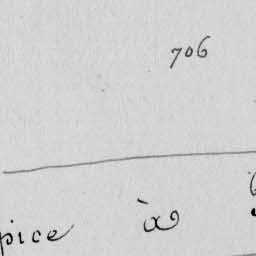 706
pice à